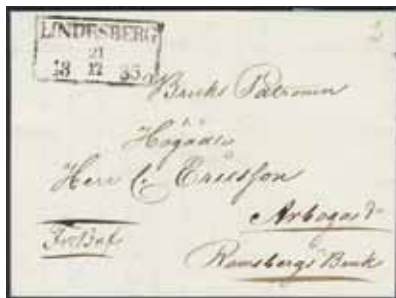 LINDESBERG
21
18 12 35
Bruks Patronen
Högädle
Herr C. Ericsson
Arboga &
Fr. Bref
Ramsbergs Bruk